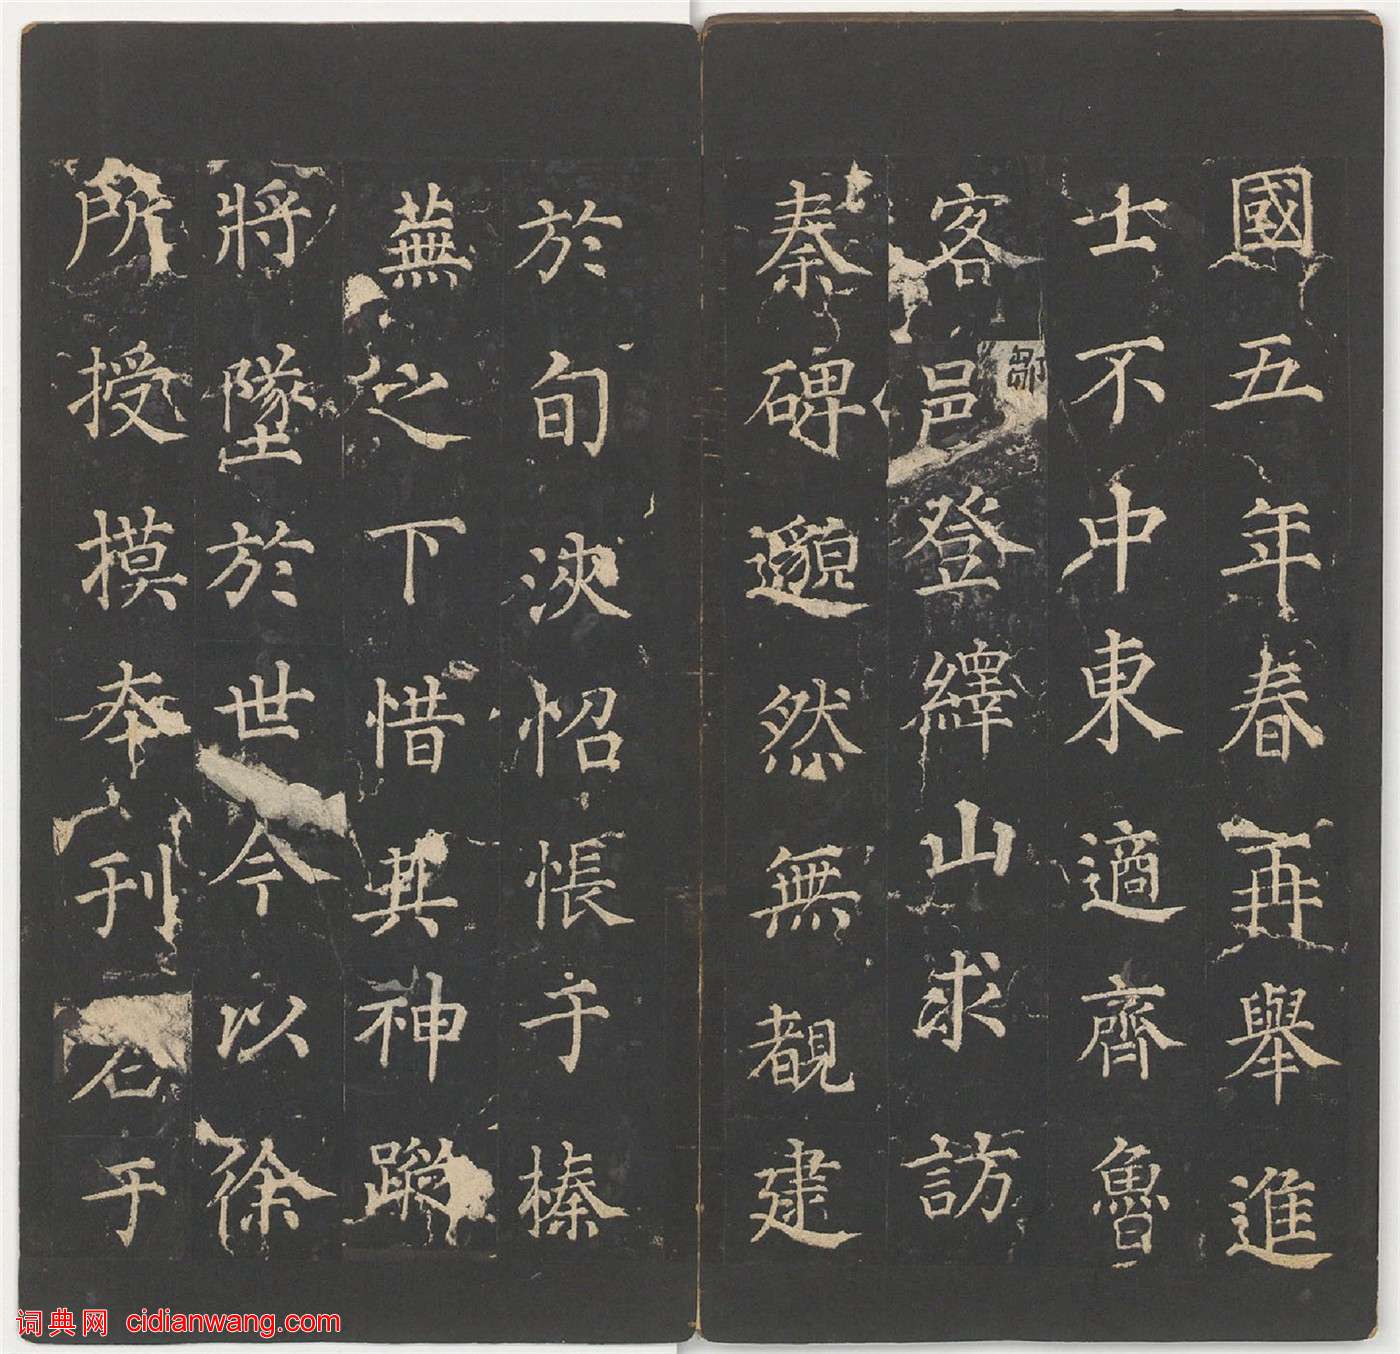 國五年春再舉進
士不中東適齊魯
客邑登繹山求訪
鄒
秦碑邈然無覩建
於旬浹怊悵于榛
蕪之下惜其神蹤
將墜於世今以徐
所授摸本刊石于
词典网 cidianwang.com